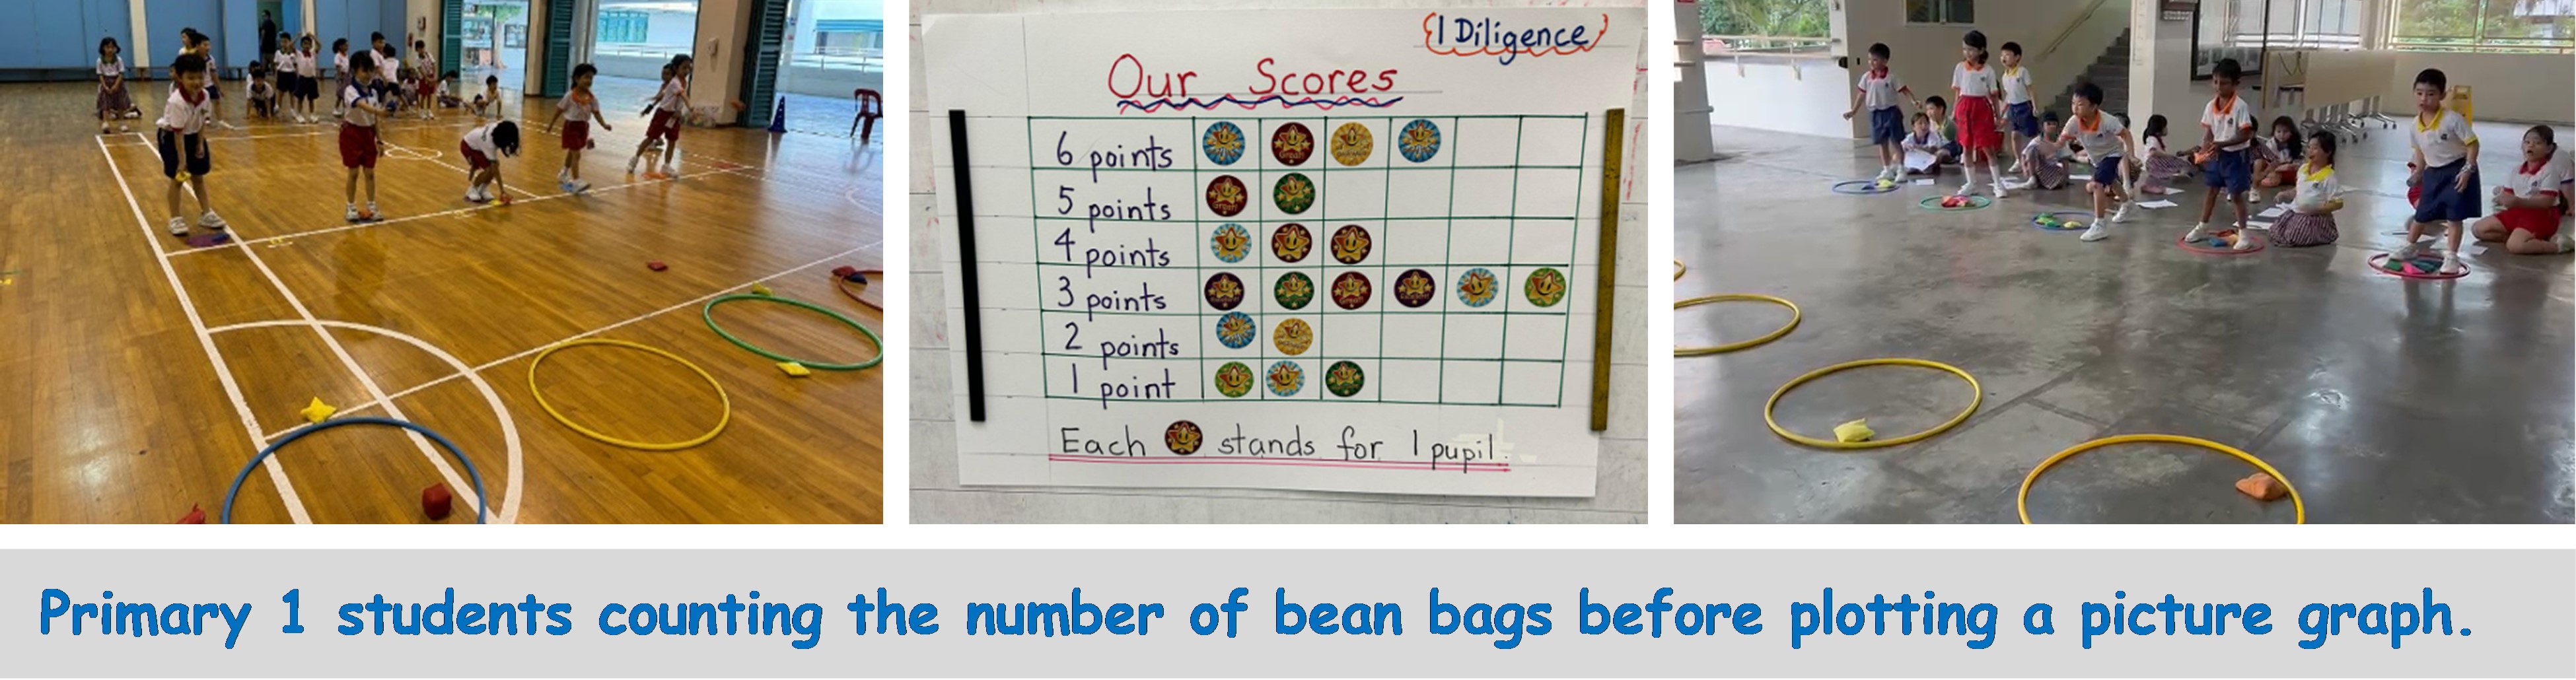 1 Diligence
Our Scores
6 points
5 points
4 points
3 points
2 points
1 point
Each stands for 1 pupil.
Primary 1 students counting the number of bean bags before plotting a picture graph.